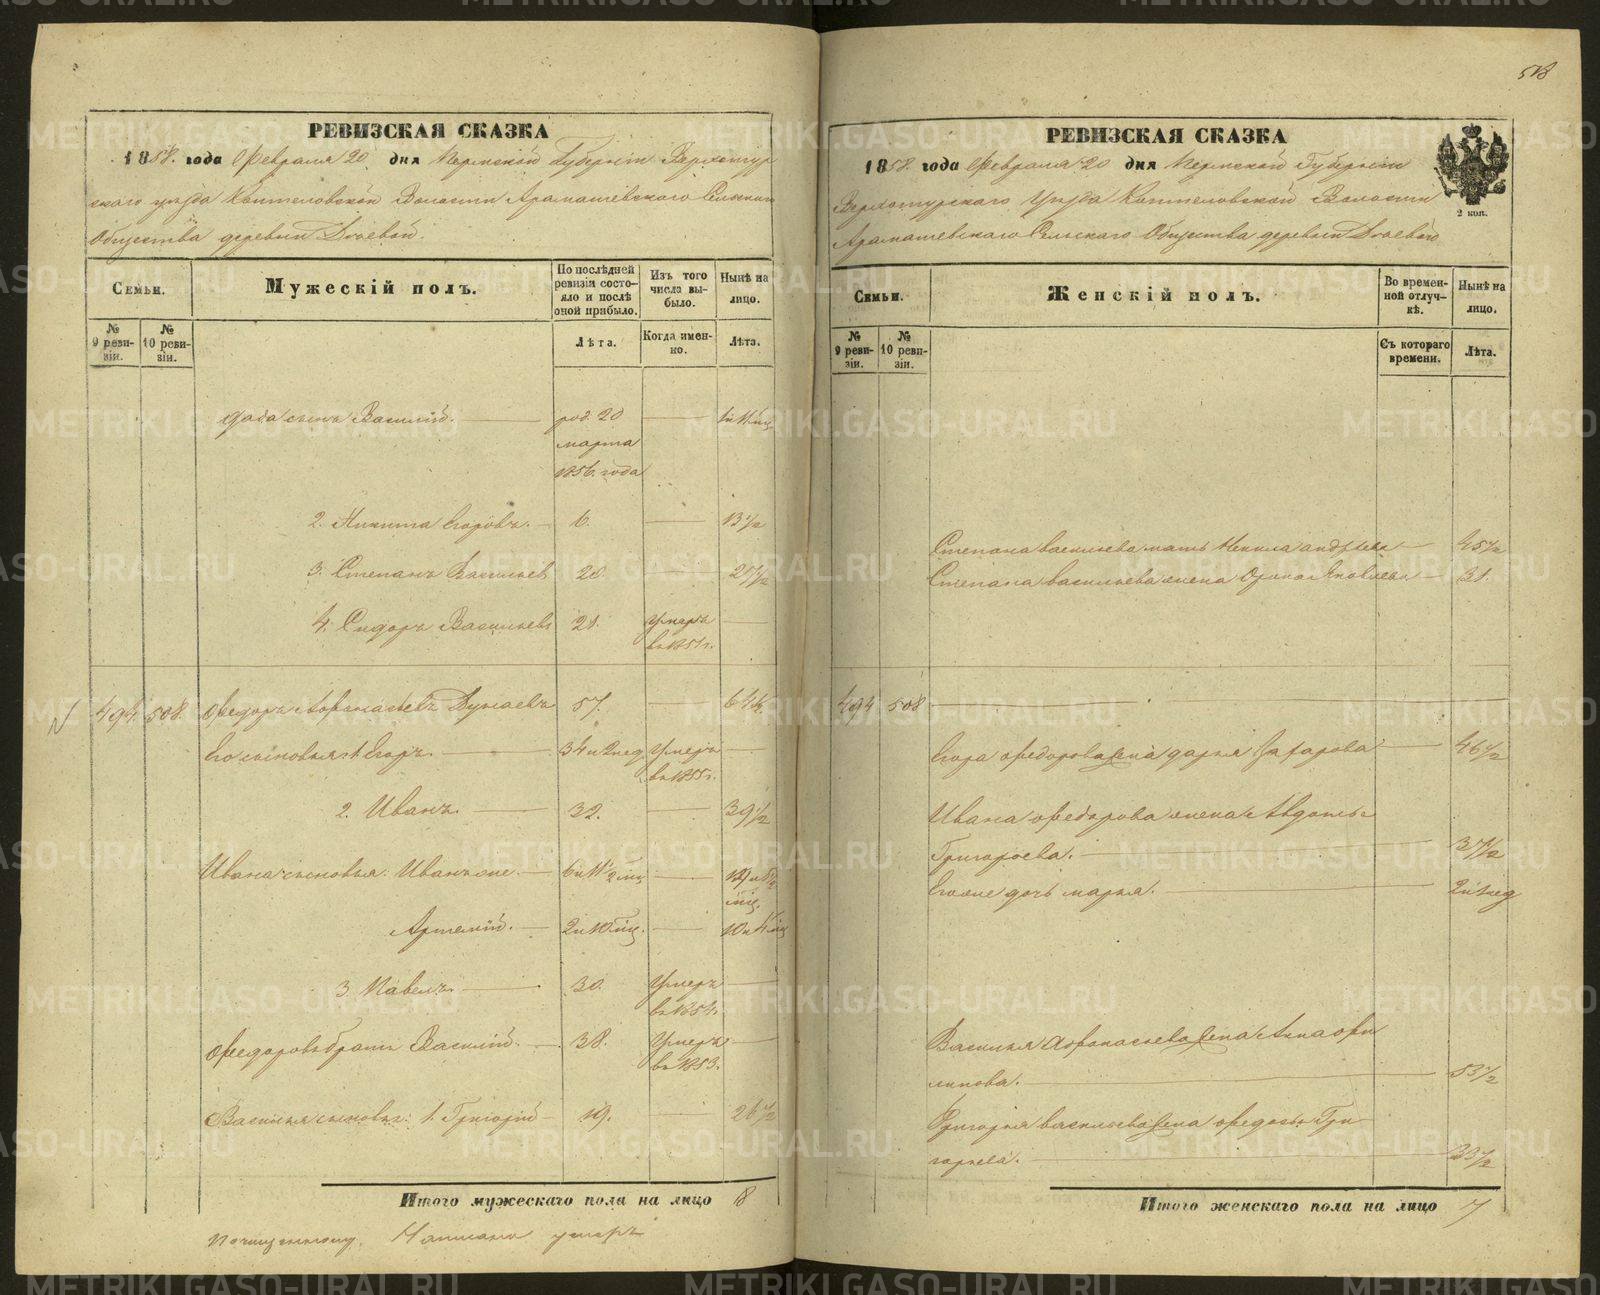 РЕВИЗСКАЯ СКАЗКА
1858. года Февраля 20 дня Пермской Губернiи Верхотур
скаго уезда Коптеловской Волости Арамашевскаго Сельскаго
Общества деревни
Семьи.
Мужескiй полъ.
По послѣдней ревизiи состояло и послѣ оной прибыло.
Изъ того числа выбыло.
Нынѣ на лицо.
№ 9 ревизiи.
№ 10 ревизiи.
Лѣта.
Когда именно.
Лѣта.
сынъ Василiй. род. 20
марта
1856. года
2. Никита Егоровъ. 6. 13 1/2
3. Степанъ Васильевъ 20. 27 1/2
4. Сидоръ Васильевъ 21. Умеръ
въ 1851 г.
494. 508. Федоръ Афонасьевъ Дунаевъ 57. 64 1/2
Его сыновья 1 Егоръ. Умеръ
въ 1855 г.
2. Иванъ. 32. 39 1/2
Ивана сыновья: Иванъ
Артемiй.
3. Павелъ. 30. Умеръ
въ 1851.
Федоровъ братъ Василiй. 38. Умеръ
въ 1853.
Василья сыновья: 1. Григорiй 19. 26 1/2
Итого мужескаго пола на лицо 8
Написано умеръ
513
РЕВИЗСКАЯ СКАЗКА
1858. года Февраля 20 дня Пермской Губернiи
Верхотурскаго Уезда Коптеловской Волости
Арамашевскаго Сельскаго Общества деревни
2 коп.
Семьи.
Женскiй полъ.
Во временной отлучкѣ.
Нынѣ на лицо.
№ 9 ревизiи.
№ 10 ревизiи.
Съ котораго времени.
Лѣта.
Степана Васильева мать Андреева 45 1/2
Степана Васильева жена Яковлева 31.
494 508
Егора Федорова жена Дарья Захарова 46 1/2
Ивана Федорова жена Авдотья
Григорьева. 37 1/2
Его же дочь Марья.
Василья Афонасьева жена Анна Фи
липова. 53 1/2
Григорья Васильева жена Федосья Гри
горьева. 33 1/2
Итого женскаго пола на лицо 7
METRIKI.GASO-URAL.RU